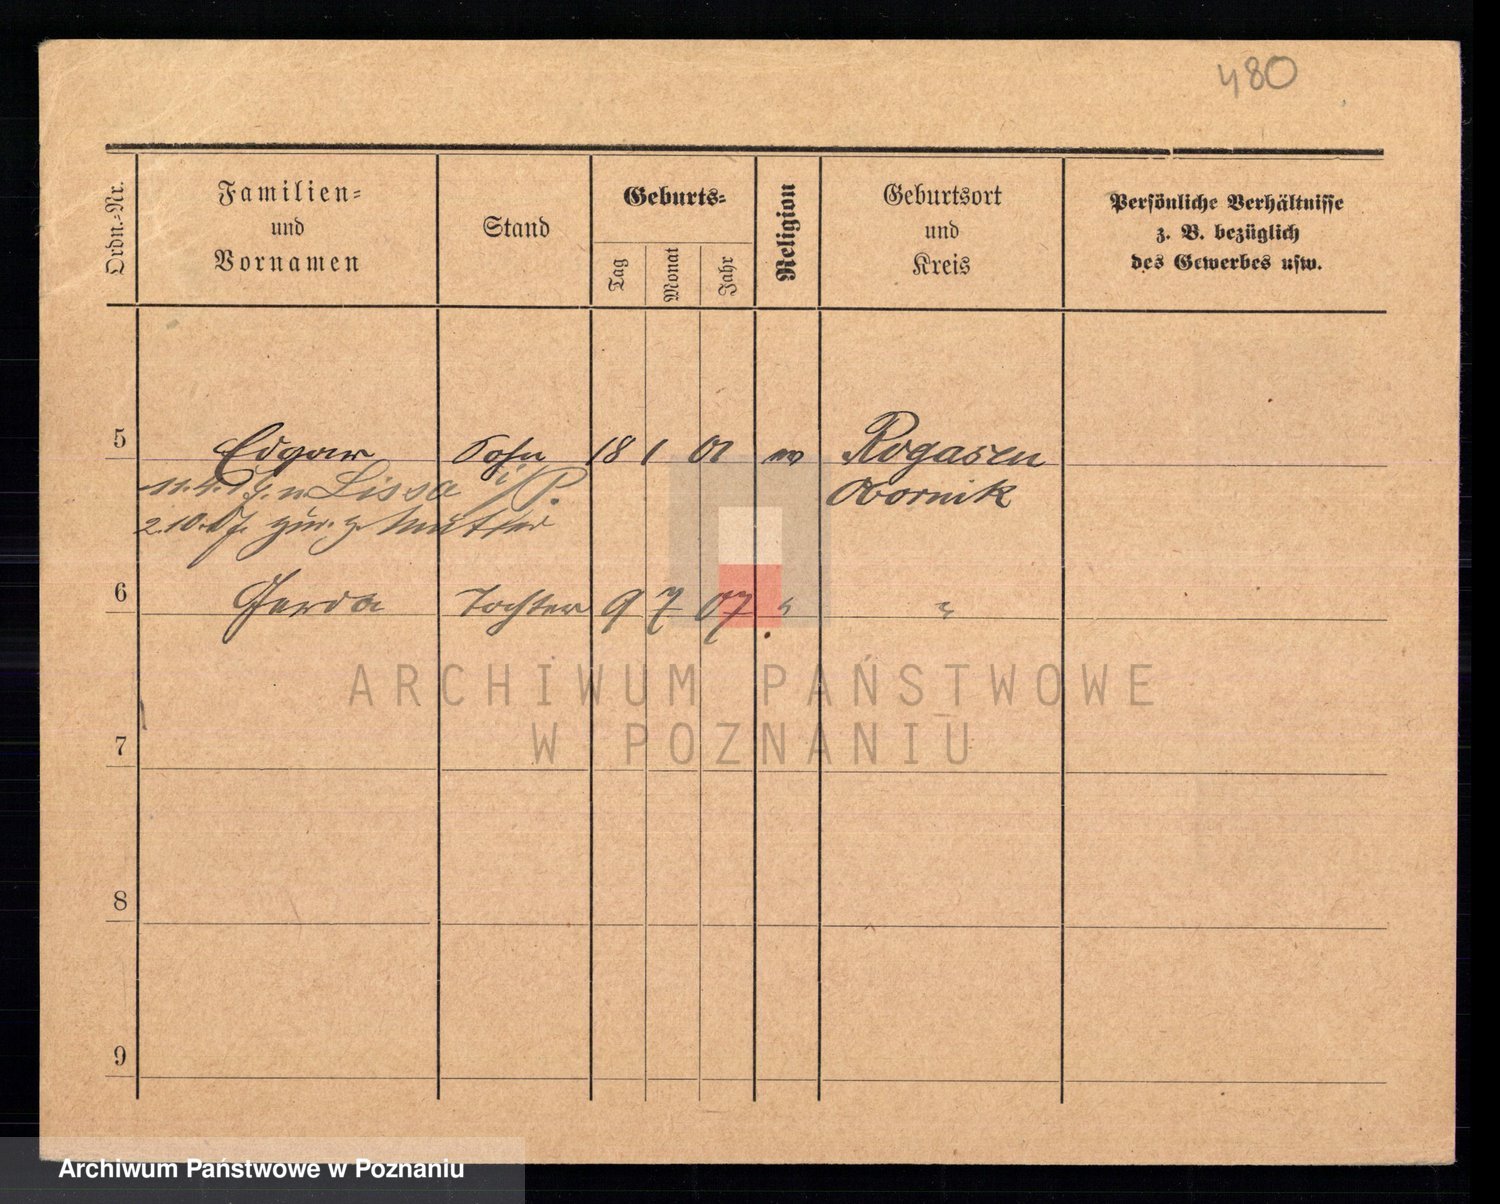 480
Ordn.-Nr.
Familien-
und
Vornamen
Stand
Geburts-
Tag
Monat
Jahr
Religion
Geburtsort
und
Kreis
Persönliche Verhältnisse
z. B. bezüglich
des Gewerbes usw.
5 Edgar Sohn 18 1 01 Rogasen
n. Lissa i/P. Obornik
2.10. zur. z. Mutter
6 Gerda Tochter 9 7 07 " "
ARCHIWUM PAŃSTWOWE
W POZNANIU
7
8
9
Archiwum Państwowe w Poznaniu